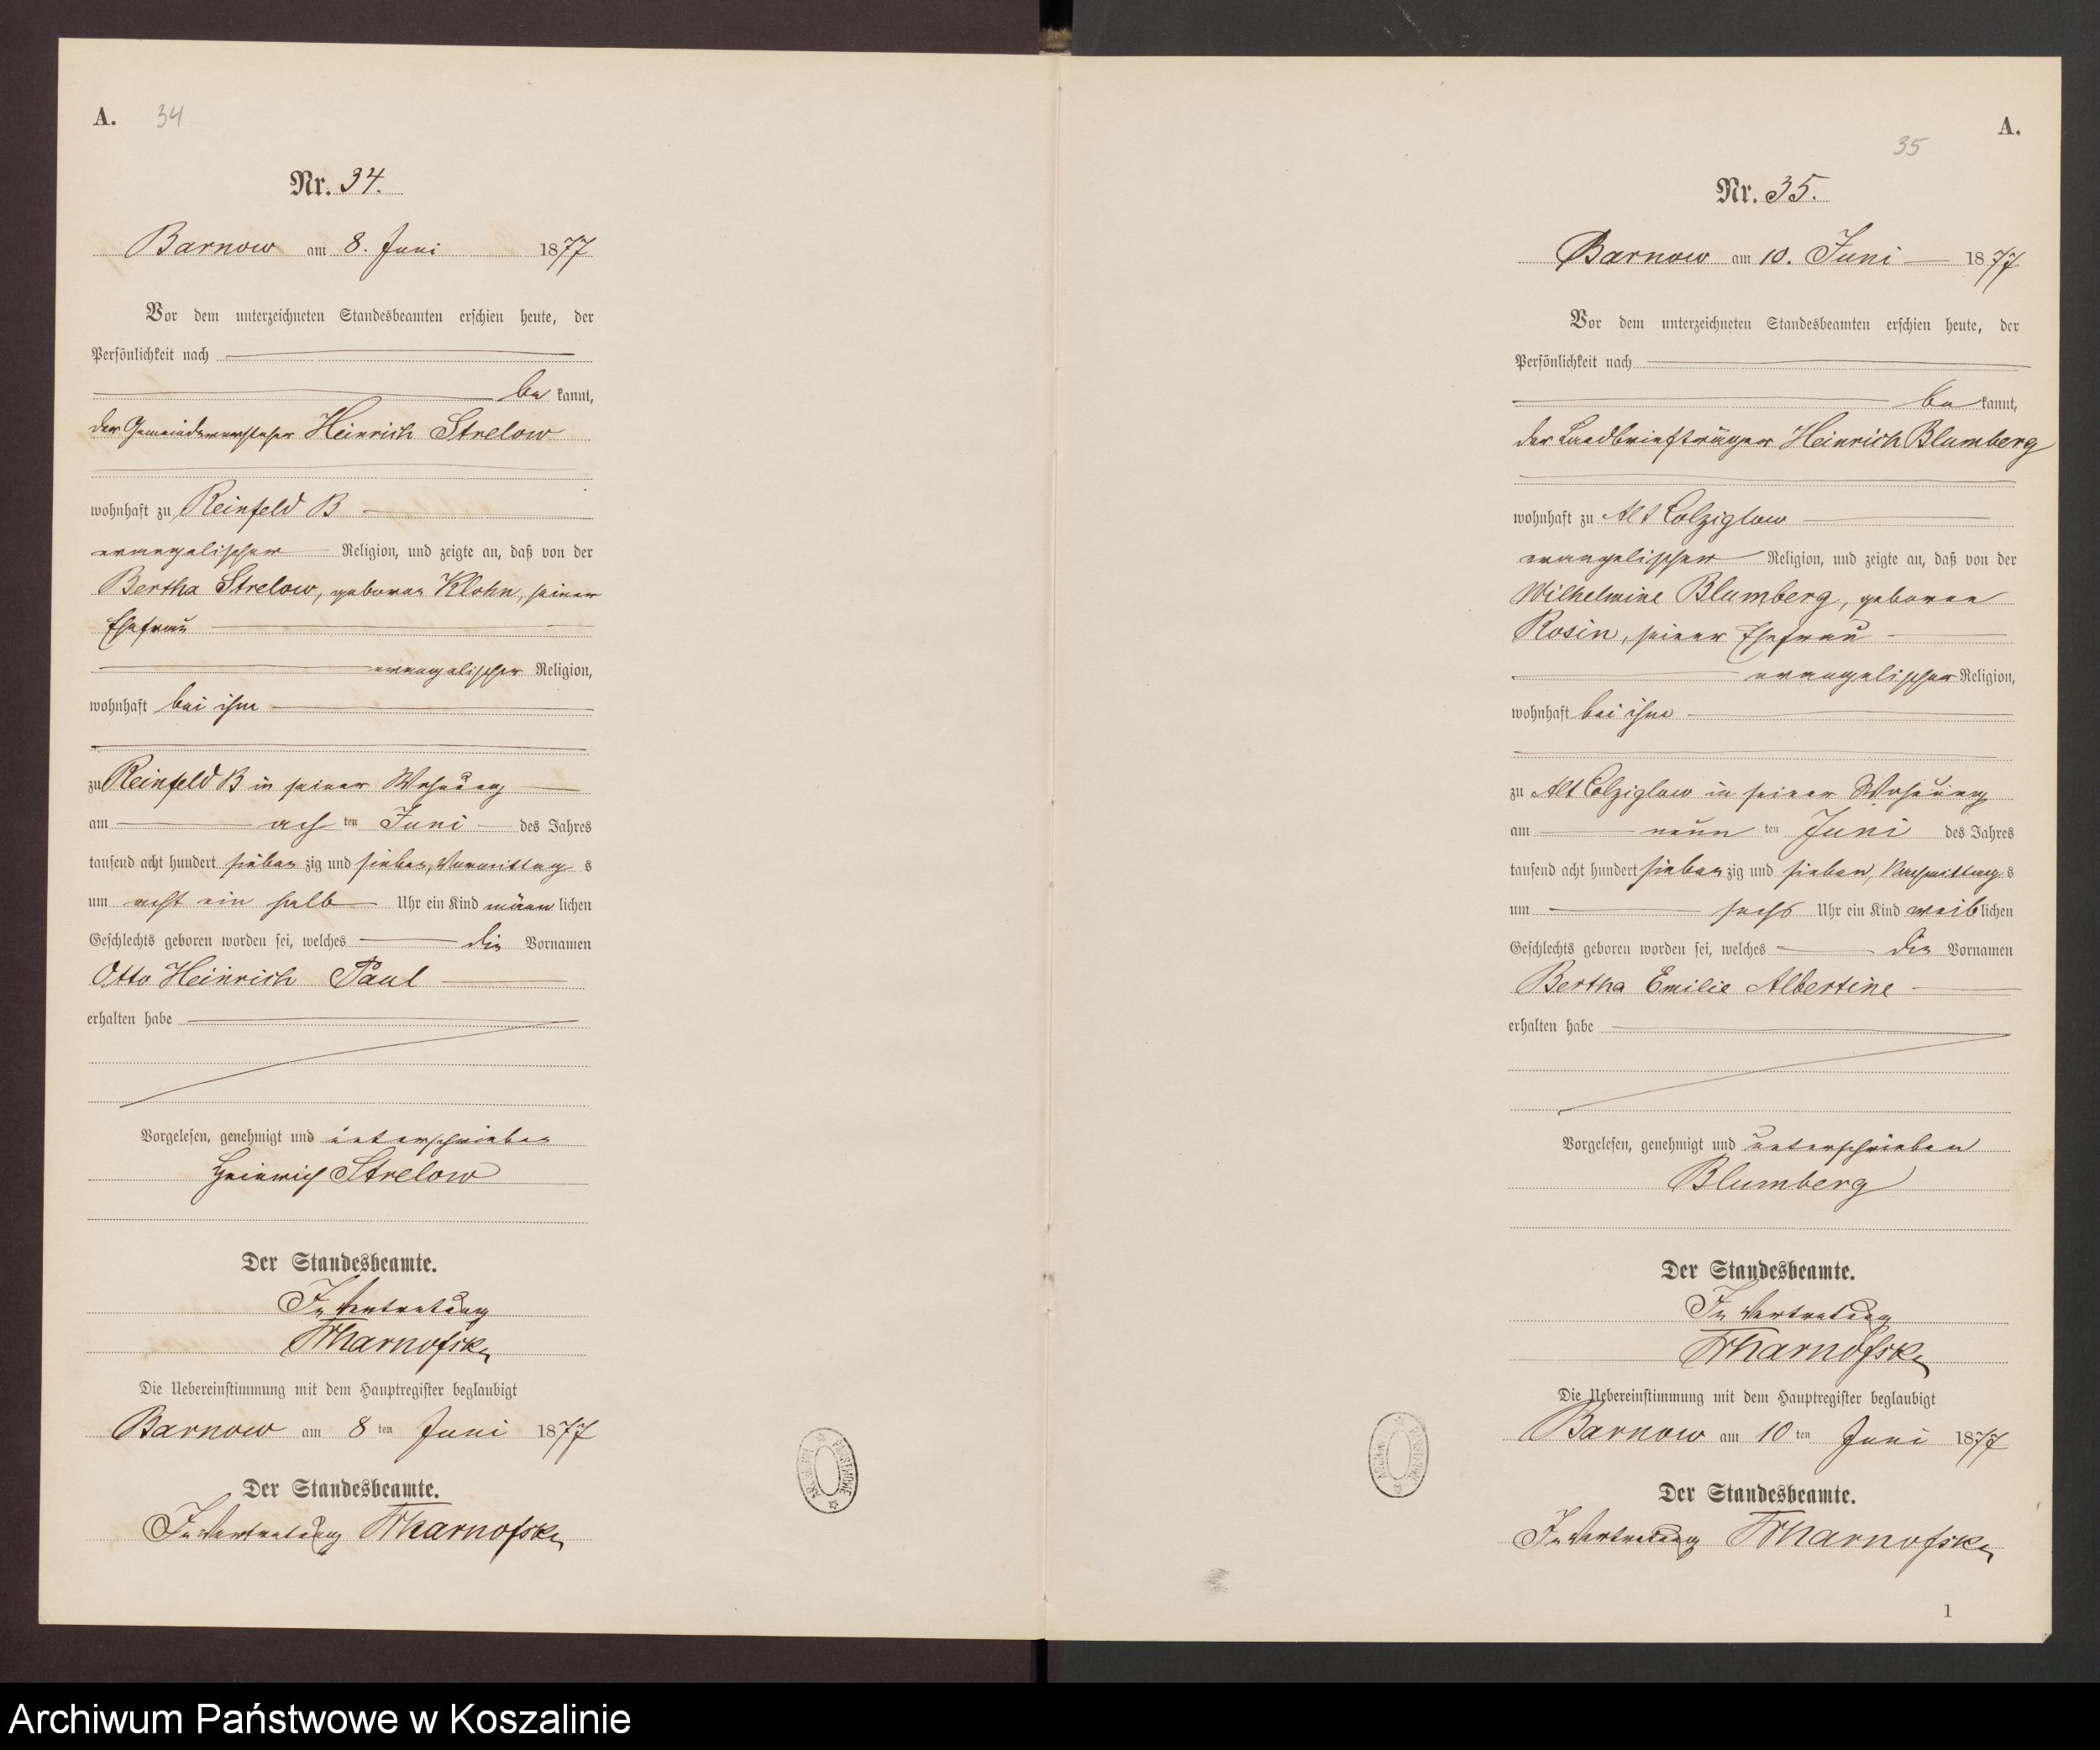 A. 34
Nr. 34.
Barnow am 8. Juni 1877
Vor dem unterzeichneten Standesbeamten erschien heute, der
Persönlichkeit nach
be kannt,
der Gemeindevorsteher Heinrich Strelow
wohnhaft zu Reinfeld B
evangelischer Religion, und zeigte an, daß von der
Bertha Strelow, geboren Klohn, seiner
Ehefrau
evangelischer Religion,
wohnhaft bei ihm
zu Reinfeld B in seiner Wohnung
am ach ten Juni des Jahres
tausend acht hundert sieben zig und sieben, Vormittag s
um acht ein halb Uhr ein Kind männ lichen
Geschlechts geboren worden sei, welches die Vornamen
Otto Heinrich Paul
erhalten habe
Vorgelesen, genehmigt und unterschrieben
Heinrich Strelow
Der Standesbeamte.
In Vertretung
Die Uebereinstimmung mit dem Hauptregister beglaubigt
Barnow am 8 ten Juni 1877
Der Standesbeamte.
In Vertretung
ARCHIWUM PAŃSTWOWE
A.
35
Nr. 35.
Barnow am 10. Juni 1877
Vor dem unterzeichneten Standesbeamten erschien heute, der
Persönlichkeit nach
be kannt,
der Landbriefträger Heinrich Blumberg
wohnhaft zu Alt Colziglow
evangelischer Religion, und zeigte an, daß von der
Wilhelmine Blumberg, geboren
Rosin, seiner Ehefrau
evangelischer Religion,
wohnhaft bei ihm
zu Alt Colziglow in seiner Wohnung
am neun ten Juni des Jahres
tausend acht hundert sieben zig und sieben, Nachmittag s
um sechs Uhr ein Kind weib lichen
Geschlechts geboren worden sei, welches die Vornamen
Bertha Emilie Albertine
erhalten habe
Vorgelesen, genehmigt und unterschrieben
Blumberg
Der Standesbeamte.
In Vertretung
Die Uebereinstimmung mit dem Hauptregister beglaubigt
Barnow am 10 ten Juni 1877
Der Standesbeamte.
In Vertretung
ARCHIWUM PAŃSTWOWE
1
Archiwum Państwowe w Koszalinie